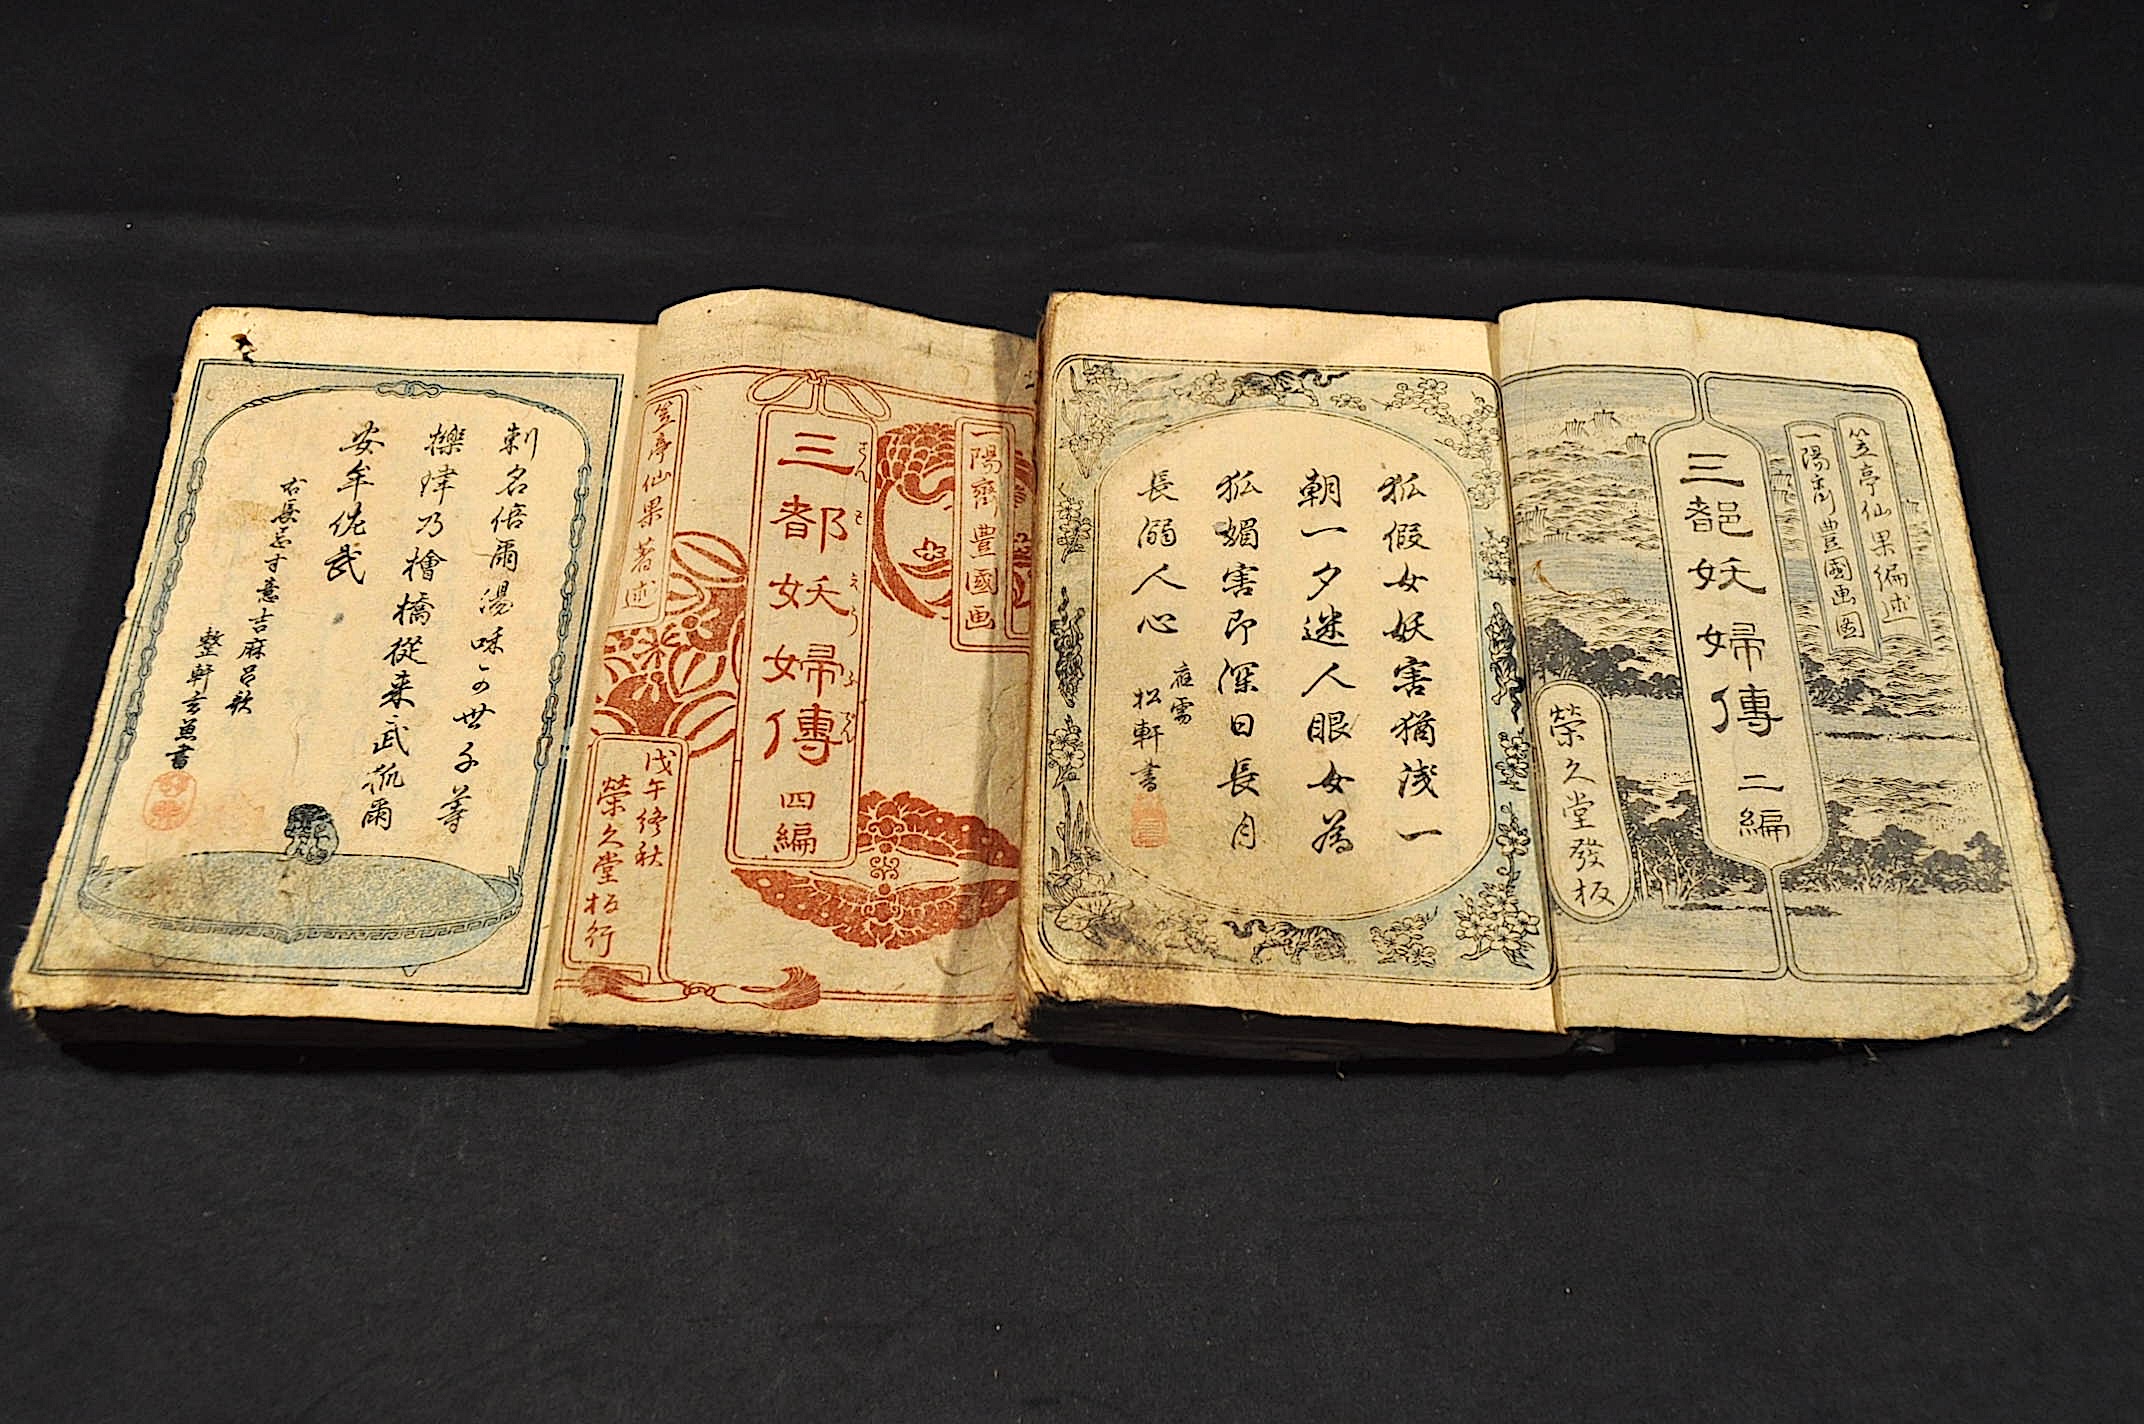 笠亭仙果編述
一陽齋豊國画圖
三都妖婦傳 二編
榮久堂發板
狐假女妖害猶淺一
朝一夕迷人眼女為
狐媚害即深日長月
長溺人心
應需
松軒書
一陽齋豊國画
三都妖婦傳 四編
さん と えう ふ でん
笠亭仙果著述
戊午
秋
榮久堂板行
刺名倍爾湯
世
檜橋從来武
爾
安牟佐武
意吉麻呂歌
書